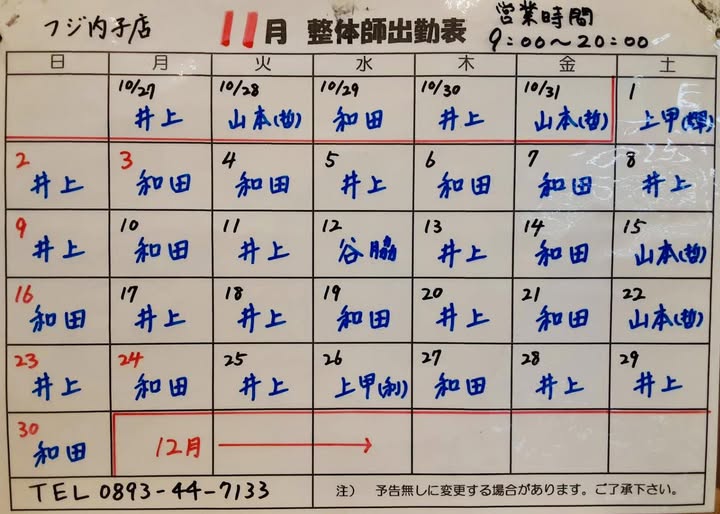 フジ内子店 11月 整体師出勤表 営業時間
9:00〜20:00
日 月 火 水 木 金 土
10/27 10/28 10/29 10/30 10/31 1
井上 山本(哲) 和田 井上 山本(哲) 上甲(輝)
2 3 4 5 6 7 8
井上 和田 和田 井上 和田 和田 井上
9 10 11 12 13 14 15
井上 和田 井上 谷脇 井上 和田 山本(哲)
16 17 18 19 20 21 22
和田 井上 井上 和田 井上 和田 山本(哲)
23 24 25 26 27 28 29
井上 和田 井上 上甲(利) 和田 井上 井上
30
和田 12月 →
TEL 0893-44-7133 注) 予告無しに変更する場合があります。ご了承下さい。